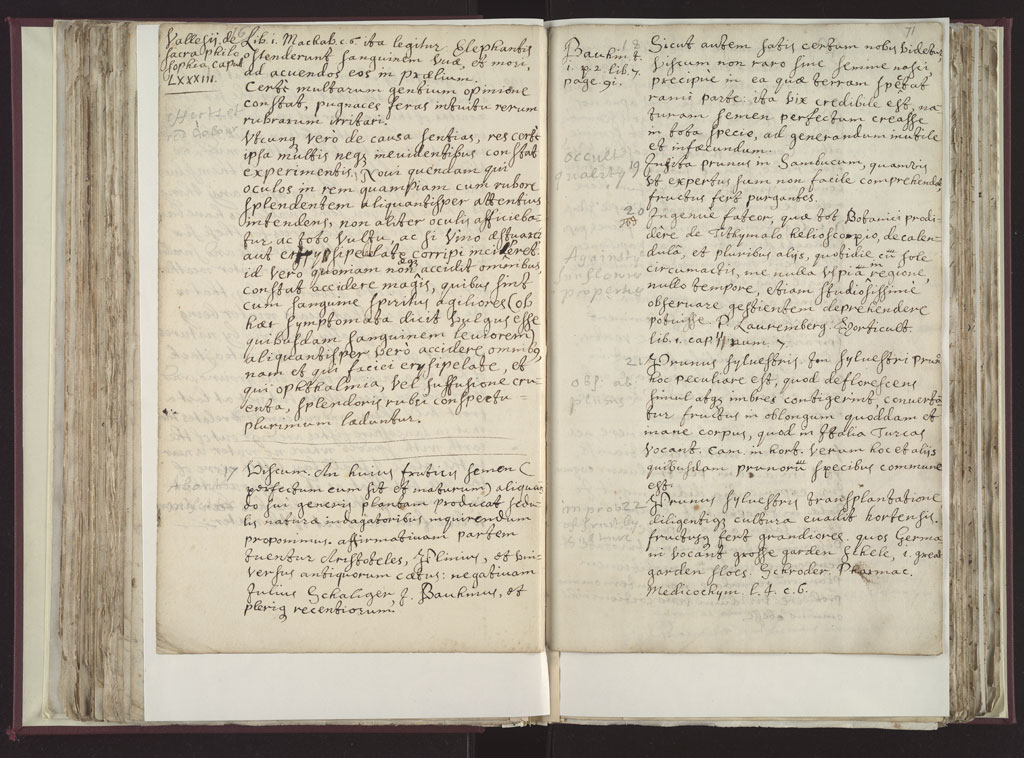 Vallesij de
sacra philo
sophia caput
LXXXIII.
Lib. 1. Machab. c. 6 ita legitur Elephantis
ostenderunt sanguinem uvæ, et mori,
ad acuendos eos in prælium.
Certè multarum gentium opinione
constat, pugnaces feras intuitu rerum
rubrarum irritari.
Vtcunq verò de causa sentias, res certè
ipsa multis neqz inevidentibus constat
experimentis. Novi quendam qui
oculos in rem quampiam cum rubore
splendentem aliquantisper attentius
intendens, non aliter oculis afficieba-
tur ac toto vultu, ac si vino æstuaret
aut erysipelate corripi inciperet.
id verò quoniam non accidit omnibus,
constat accidere magis, quibus sint
cum sanguine spiritus agiliores (ob
hæc symptomata dicit vulgus esse
quibusdam sanguinem leviorem)
aliquantisper verò accidere omnibq,
nam et qui faciei erysipelate, et
qui ophthalmia, vel suffusione cru-
enta, splendoris rubri conspectu
plurimum læduntur.
17 Viscum. An huius fruticis semen (
perfectum cum sit et maturum) aliquan
do sui generis plantam producat sedu
lis naturæ indagatoribus inquirendum
proponimus. affirmativam partem
tuentur Aristoteles, Plinius, et uni-
versus antiquorum cœtus: negativam
Julius Schaliger J. Bauhinus, et
pleriq recentiorum.
71
Bauhin. t.
1. p. 2. lib. 7.
page. 91.
18 Sicut autem satis certum nobis videtur
Viscum non raro sine semine nasci
præcipue in ea quæ terram spectat
rami parte: ita vix credibile est, na-
turam semen perfectum creasse
in tota specie, ad generandum inutile
et infæcundum.
occult
quality
19 Insita prunus in Sambucum, quamvis
vt expertus sum non facile comprehendat
fructus fert purgantes.
20 Ingenue fateor, quæ tot Botanici prodi-
dêre de Tithymalo helioscopio, de calen-
dulâ, et pluribus alijs, quotidie cum sole
circumactis, me nulla uspiam regione,
nullo tempore, etiam studiosissimè
observare gestientem deprehendere
potuisse. P. Lauremberg. Horticult.
lib. 1. cap num. 7
Against
sunflower
property
21 Prunus sylvestris. In sylvestri pruno
hoc peculiare est, quod deflorescens
simul atqz imbres contigerint convertū
tur fructus in oblongum quoddam et
inane corpus, quod in Italia Turcas
vocant. Cam. in hort. Verum hoc et alijs
quibusdam prunorū speciebus commune
est.
22 Prunus sylvestris transplantatione
diligentiqz cultura evadit hortensis.
fructusq fert grandiores. quos Germa
ni vocant grosse garden Schele, i. great
garden sloes. Schroder. Pharmac.
Medicochym. l. 4. c. 6.